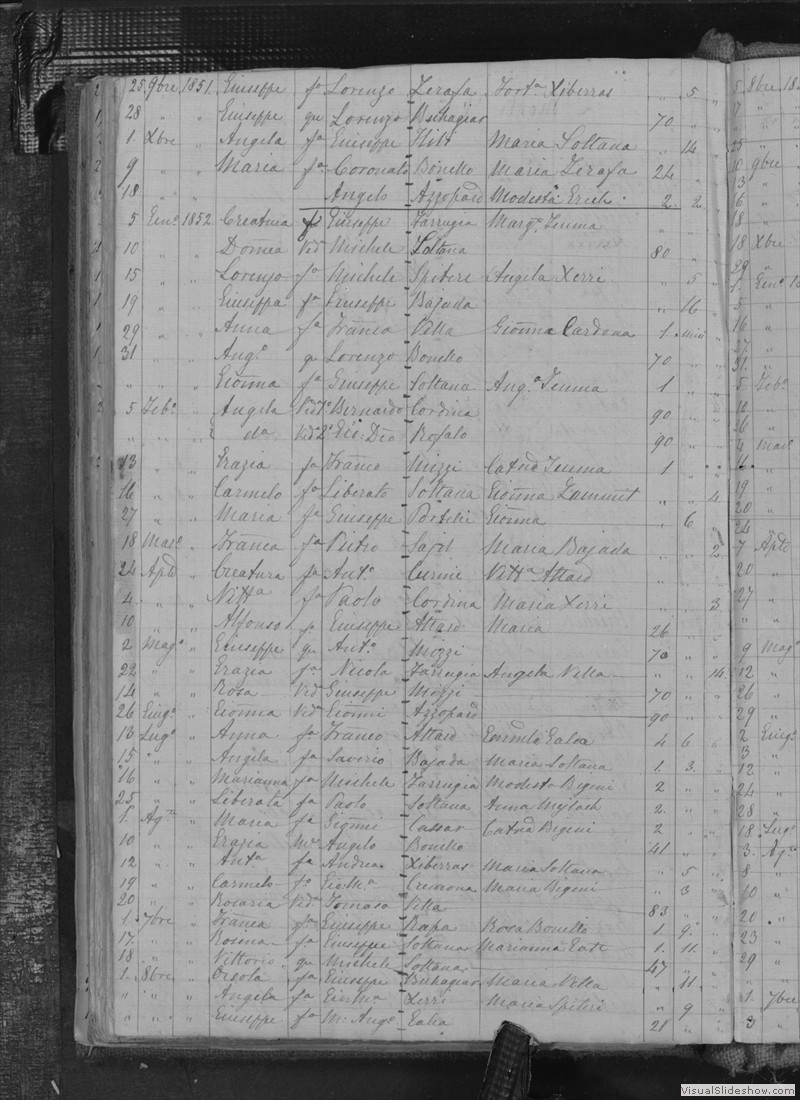 25 9bre 1851 Giuseppe fo Lorenzo Zerafa Forta Xiberras " 5 "
28 " " Giuseppe qu Lorenzo Buhagiar 70 " "
1 Xbre " Angela fa Giuseppe Maria Soltana " 14 "
9 " " Maria fa Coronato Bonello Maria Zerafa 24 " "
18 " " Angelo Azzopard Modesta 2 2
5 Genº 1852 Creatura fo Giuseppe Farrugia Margª " " "
10 " " Domca Vedª Michele Soltana 80 " "
15 " " Lorenzo fo Michele Spiteri Angela Xerri " 5 "
19 " " Giuseppa fa Giuseppe Bajada " 16 "
29 " " Anna fa Franco Vella Gionna Cardona 1
31 " " Angº qu Lorenzo Bonello 70 " "
" " " Gionna fa Giuseppe Soltana Angª 1 " "
5 Febº " Angela Ved 1º Bernardo Cordina 90 " "
" " " da Ved 2º Gio: Dro 90 " "
13 " " Grazia fa Franco Mizzi Catna 1 " "
16 " " Carmelo fo Liberato Soltana Gionna Zammit " " 4
27 " " Maria fa Giuseppe Portelli Gionna " 6 "
18 Marº " Franca fa Pietro Maria Bajada " " 2
24 Aple " Creatura fa Antº Curmi Vittª Attard " " "
4 " " Vittª fa Paolo Cordina Maria Xerri " " 3
10 " " Alfonso fo Giuseppe Attard Maria 26 " "
2 Magº " Giuseppe qu Antº Mizzi 70 " "
22 " " Grazia fa Nicola Farrugia Angela Vella " " 14
14 " " Rosa Ved Giuseppe Mizzi 70 " "
26 Giugº " Gionna Ved Gionni Azzopard 90 " "
13 Lugº " Anna fa Franco Attard Galea 4 6 "
15 " " Angela fa Saverio Bajada Maria Soltana 1 3 "
16 " " Marianna fa Michele Farrugia Modesta Bigeni 2 " "
25 " " Liberata fa Paolo Soltana Anna 2 " "
1 Agº " Maria fa Gionni Cassar Catna Bigeni 2 " "
10 " " Grazia Me Angelo Bonello 41 " "
12 " " Antª fa Andrea Xiberras Maria Soltana " 5 "
19 " " Carmelo fo Gio Mª Cremona Maria Bigeni " 3 "
20 " " Rosaria Ved Tomaso Vella 83 " "
1 7bre " Franca fa Giuseppe Rapa Rosa Bonello 1 9 "
17 " " Rosina fa Giuseppe Soltana Marianna 1 11 "
18 " " Vittorio qu Michele Soltana 47 " "
1 8bre " Orsola fa Giuseppe Buhagiar Maria Vella " 11 "
" " " Angela fa Gio Mª Xerri Maria Spiteri " 9 "
" " " Giuseppe fo M. Angº Galea 21 " "
5 8bre 18
7 "
" "
25 "
10 9bre
3 "
6 "
18 "
18 Xbre
29 "
1 Genº 18
5 "
16 "
27 "
31 "
5 Febº
10 "
26 "
4 Marº
11 "
19 "
20 "
24 "
7 Aple
20 "
27 "
" "
9 Magº
12 "
26 "
29 "
2 Giugº
3 "
12 "
24 "
28 "
18 Lugº
3 Agº
8 "
10 "
20 "
23 "
29 "
1 7bre
3 "
VisualSlideshow.com